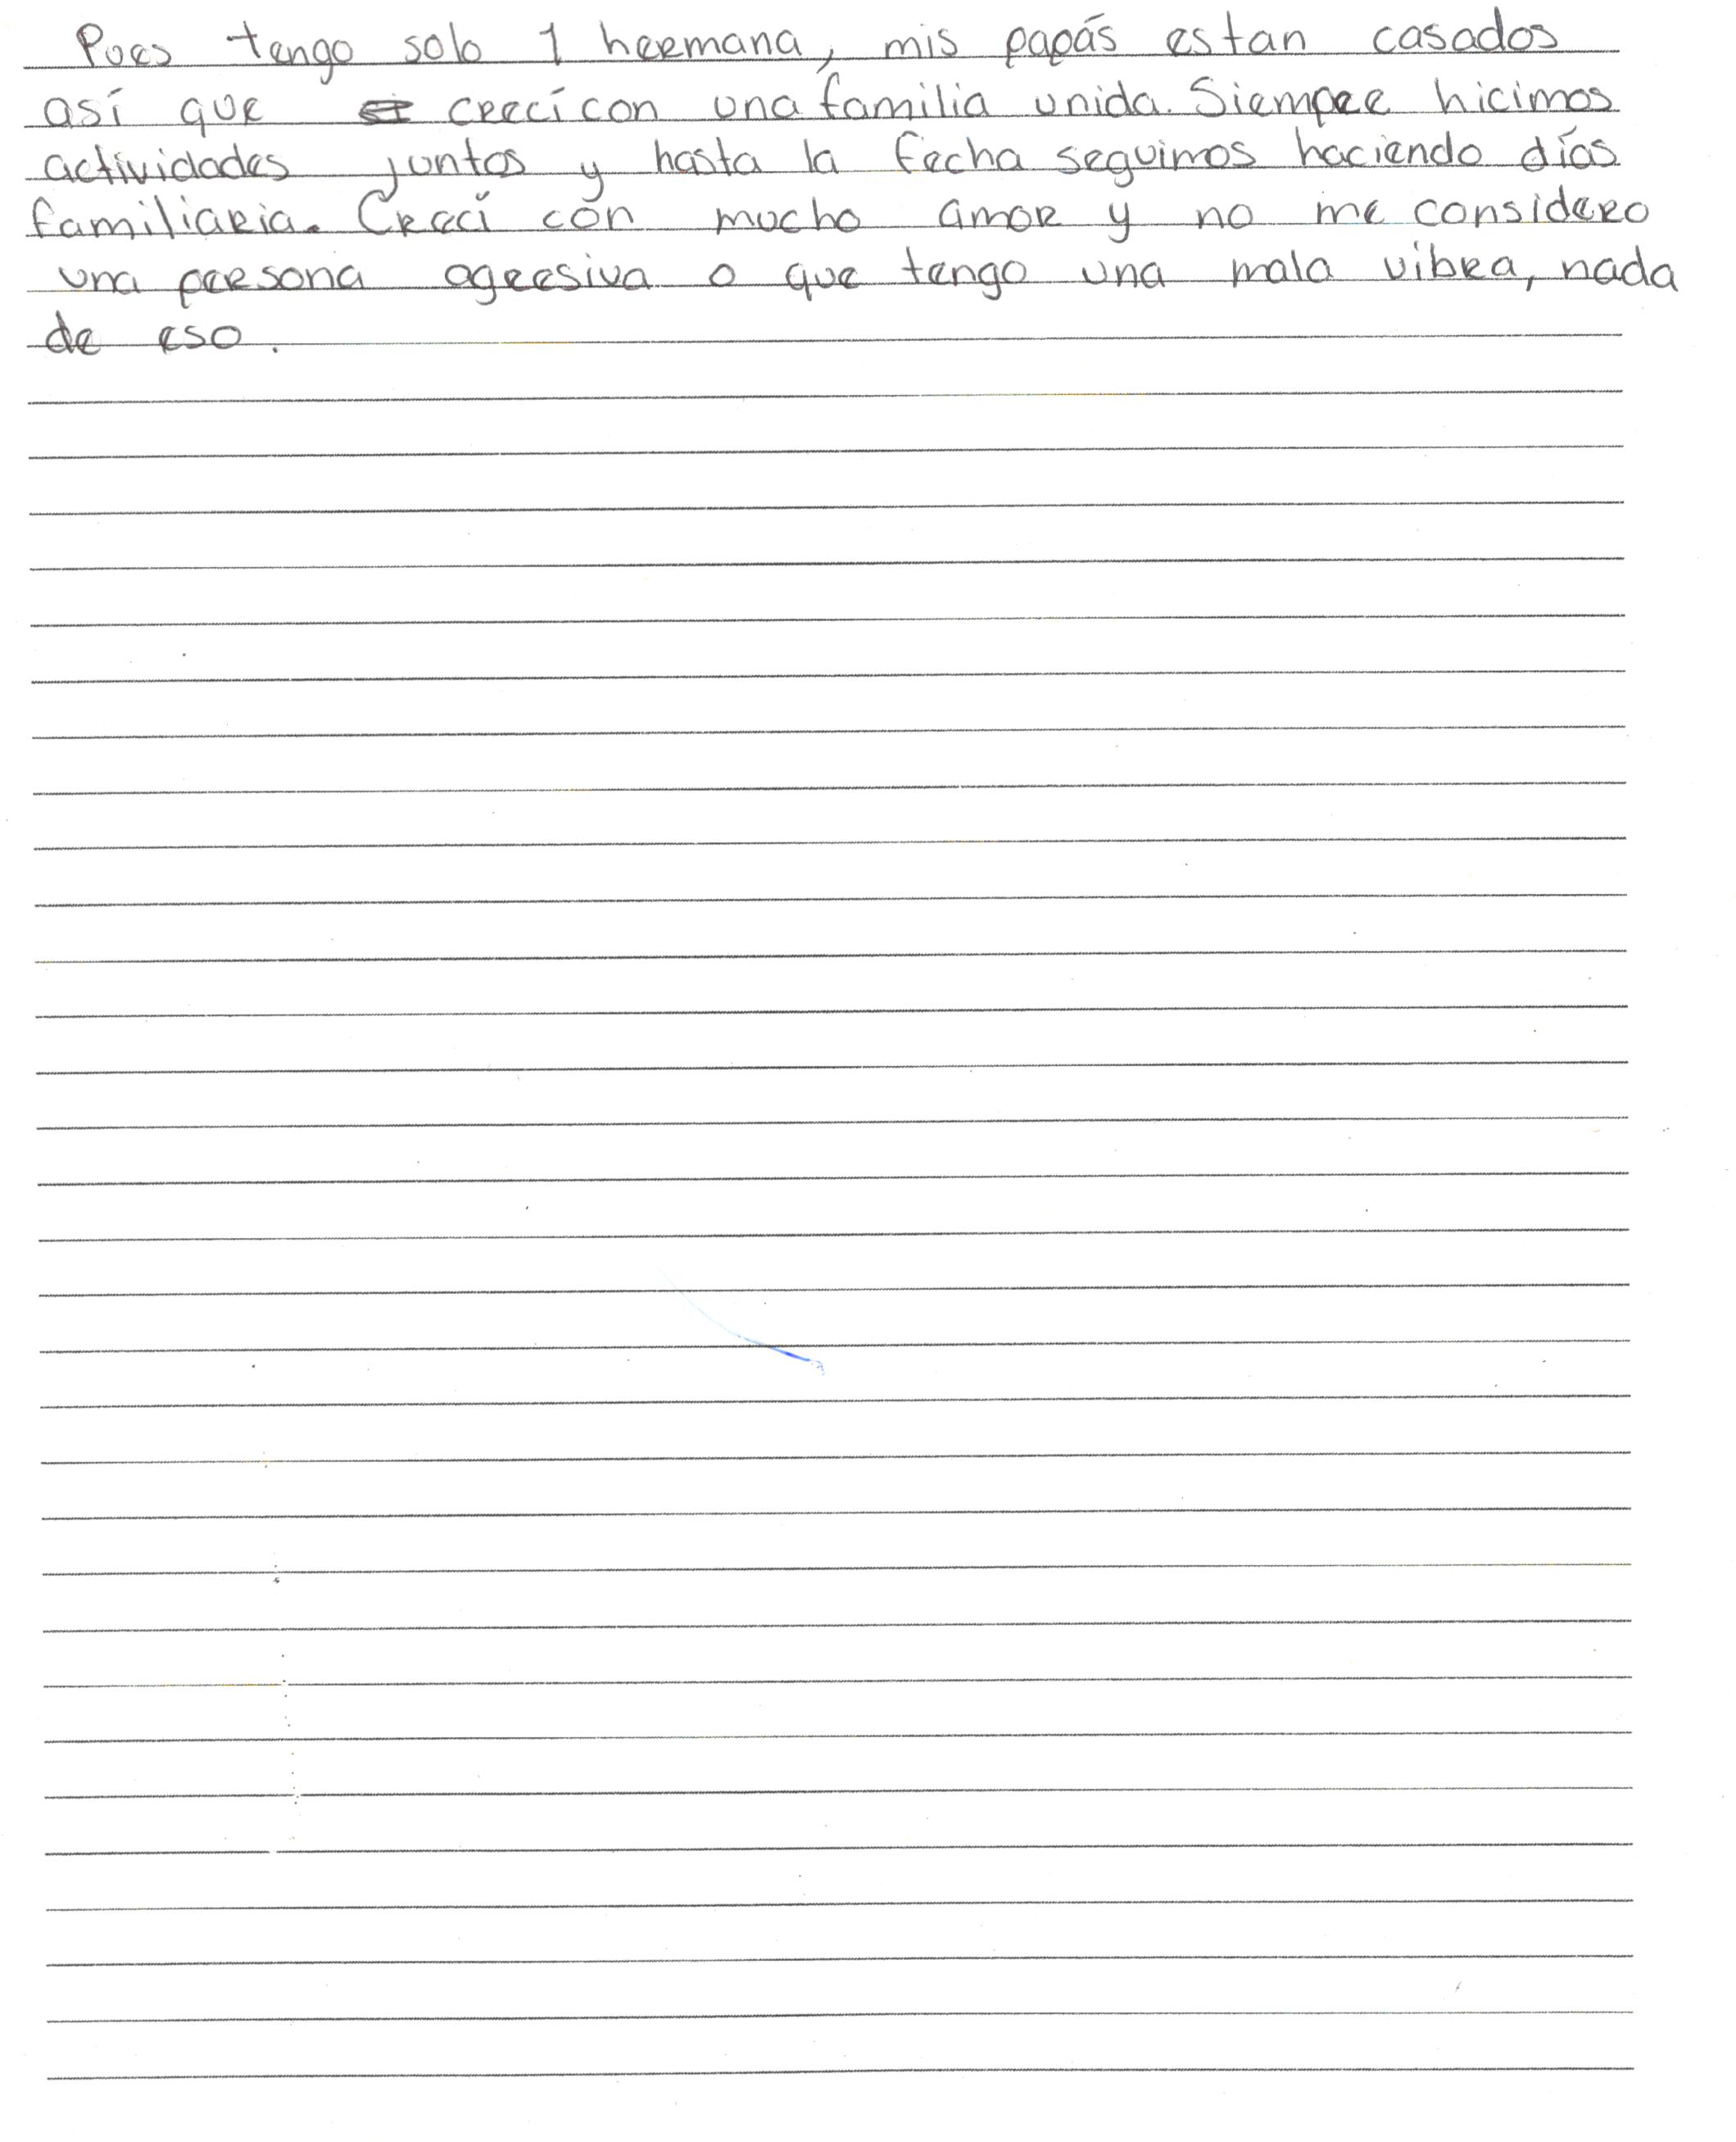 Pues tengo solo 1 hermana, mis papás estan casados
así que crecí con una familia unida. Siempre hicimos
actividades juntos y hasta la fecha seguimos haciendo días
familiaria. Crecí con mucho amor y no me considero
una persona agresiva o que tengo una mala vibra, nada
de eso.